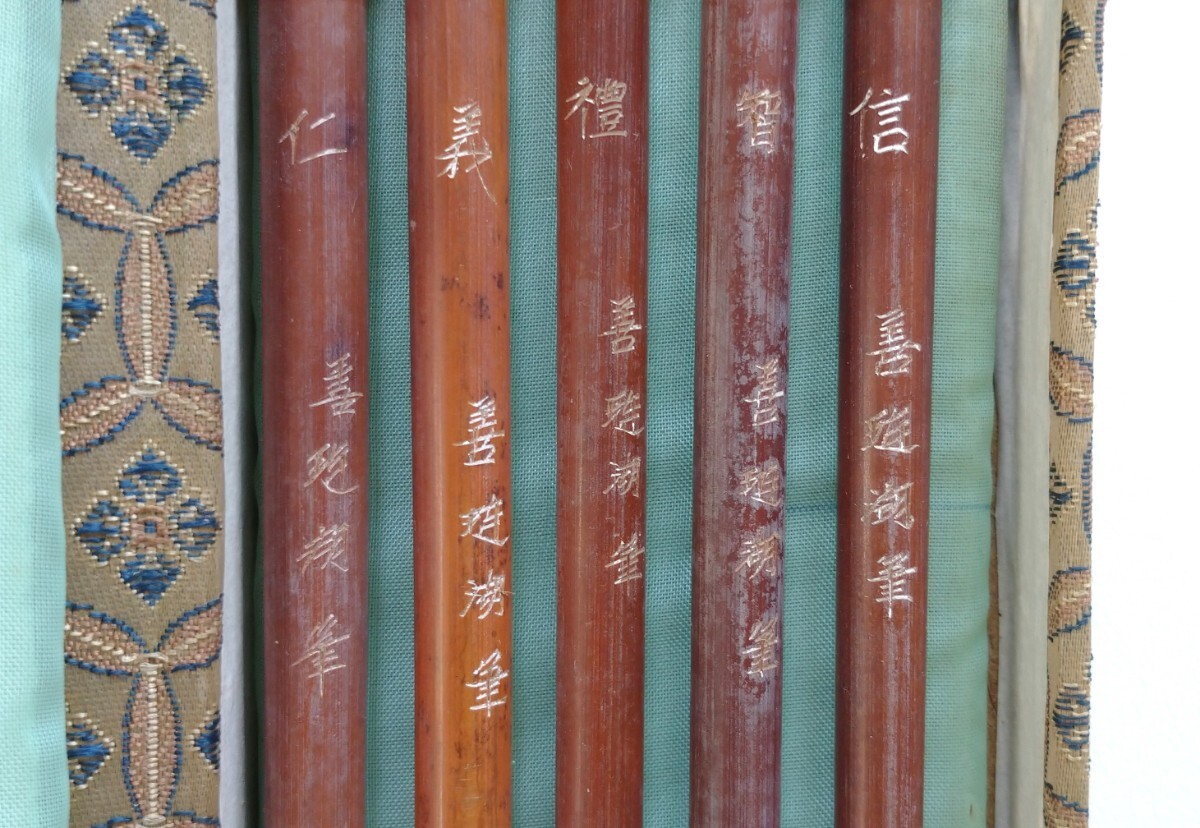 仁
善琏湖筆
義
善琏湖筆
禮
善琏湖筆
智
善琏湖筆
信
善琏湖筆